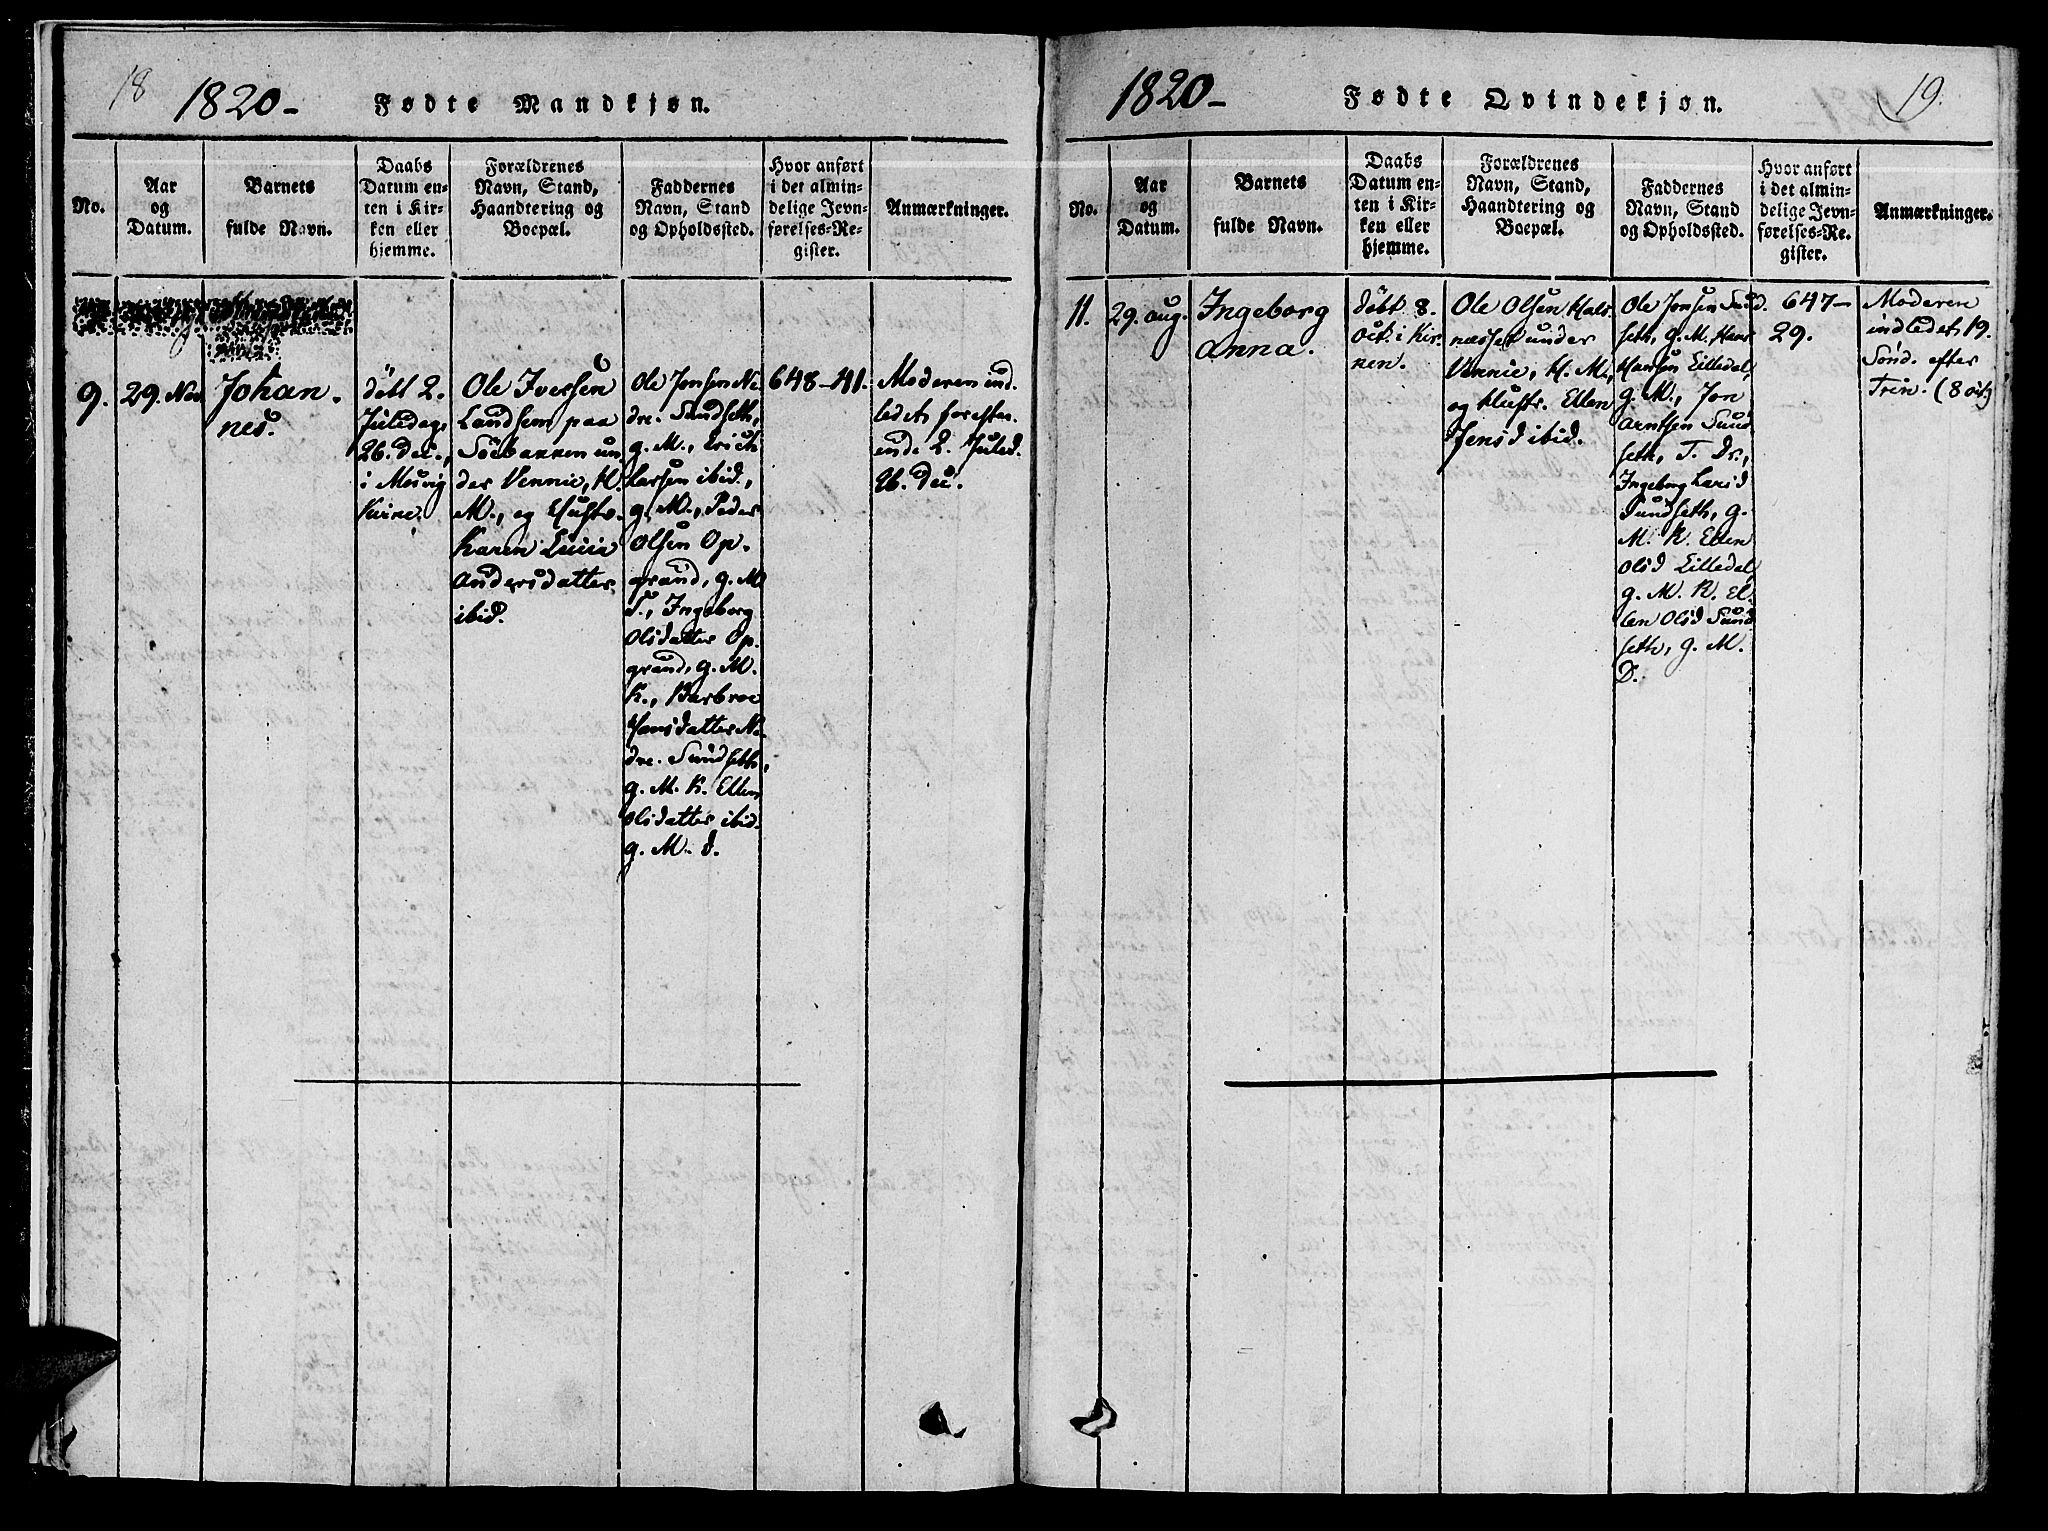 18
1820-
Fødte Mandkjøn.
No.
Aar
og
Datum.
Barnets
fulde Navn.
Daabs
Datum en-
ten i Kir-
ken eller
hjemme.
Forældrenes
Navn, Stand,
Haandtering og
Boepæl.
Faddernes
Navn, Stand
og Opholdssted.
Hvor anført
i det almin-
delige Jevn-
førelses-Re-
gister.
Anmærkninger.
9.
29. Nov.
Johan-
nes.
döbt 2.
Juledag,
26. Dec.,
i Mosvig
Kirke.
Ole Iversen
Landsem paa
Söebakken un-
der Vennie, H.
M., og Hustr.
Karen Lucia
Andersdatter
ibid.
Ole Jonsen Ne-
dre. Sundseth,
g. M., Erich
Larsen ibid.,
g. M., Peder
Olsen Op-
grand, g. M
T., Ingeborg
Olsdatter Op-
grand, g. M.
K., Barbroe
Hansdatter Ne-
dre. Sundseth,
g. M. K. Ellen
Olsdatter ibid.
g. M. d.
648-41.
Moderen ind-
ledet foreften-
ende 2. Juled.
26. Dec.
1820-
Fødte Qvindekjøn.
19.
No.
Aar
og
Datum.
Barnets
fulde Navn.
Daabs
Datum en-
ten i Kir-
ken eller
hjemme.
Forældrenes
Navn, Stand,
Haandtering og
Boepæl.
Faddernes
Navn, Stand
og Opholdssted.
Hvor anført
i det almin-
delige Jevn-
førelses-Re-
gister.
Anmærkninger.
11.
29. aug.
Ingeborg
Anna.
döbt 8.
oct. i Kir-
ken.
Ole Olsen Hals-
næsset under
Vennie, H. M.,
og Hustr. Ellen
Jensd ibid.
Ole Jonsen Sund-
seth, g. M. Hans
Hansen Lilledal,
g. M., Jon
Arntsen Sund-
seth, T. Dr.,
Ingeborg Larsd
Sundseth, g.
M. K. Ellen
Olsd Lilledal,
g. M. K. El-
len Olsd Sund-
seth, g. M.
D.
647-
29.
Moderen
indledet 19.
Sönd. efter
Trin. (8 oct)